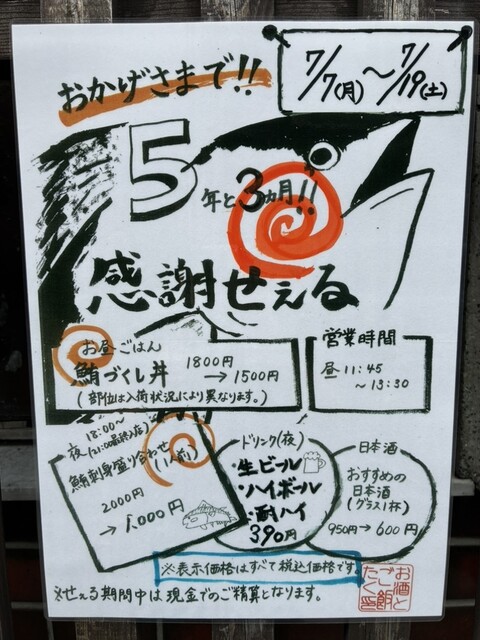 おかげさまで!!
7/7(月)〜7/19(土)
5年と3ヵ月!!
感謝せぇる
お昼ごはん
鮪づくし丼 1800円→1500円
(部位は入荷状況により異なります。)
営業時間
昼11:45
〜13:30
夜18:00〜
(21:00最終入店)
鮪刺身盛り合わせ(1人前)
2000円
→1,000円
ドリンク(夜)
・生ビール
・ハイボール
・酎ハイ
390円
日本酒
おすすめの
日本酒
(グラス1杯)
950円→600円
※表示価格はすべて税込価格です。
※せぇる期間中は現金でのご精算となります。
お酒と
ごし飯
たく